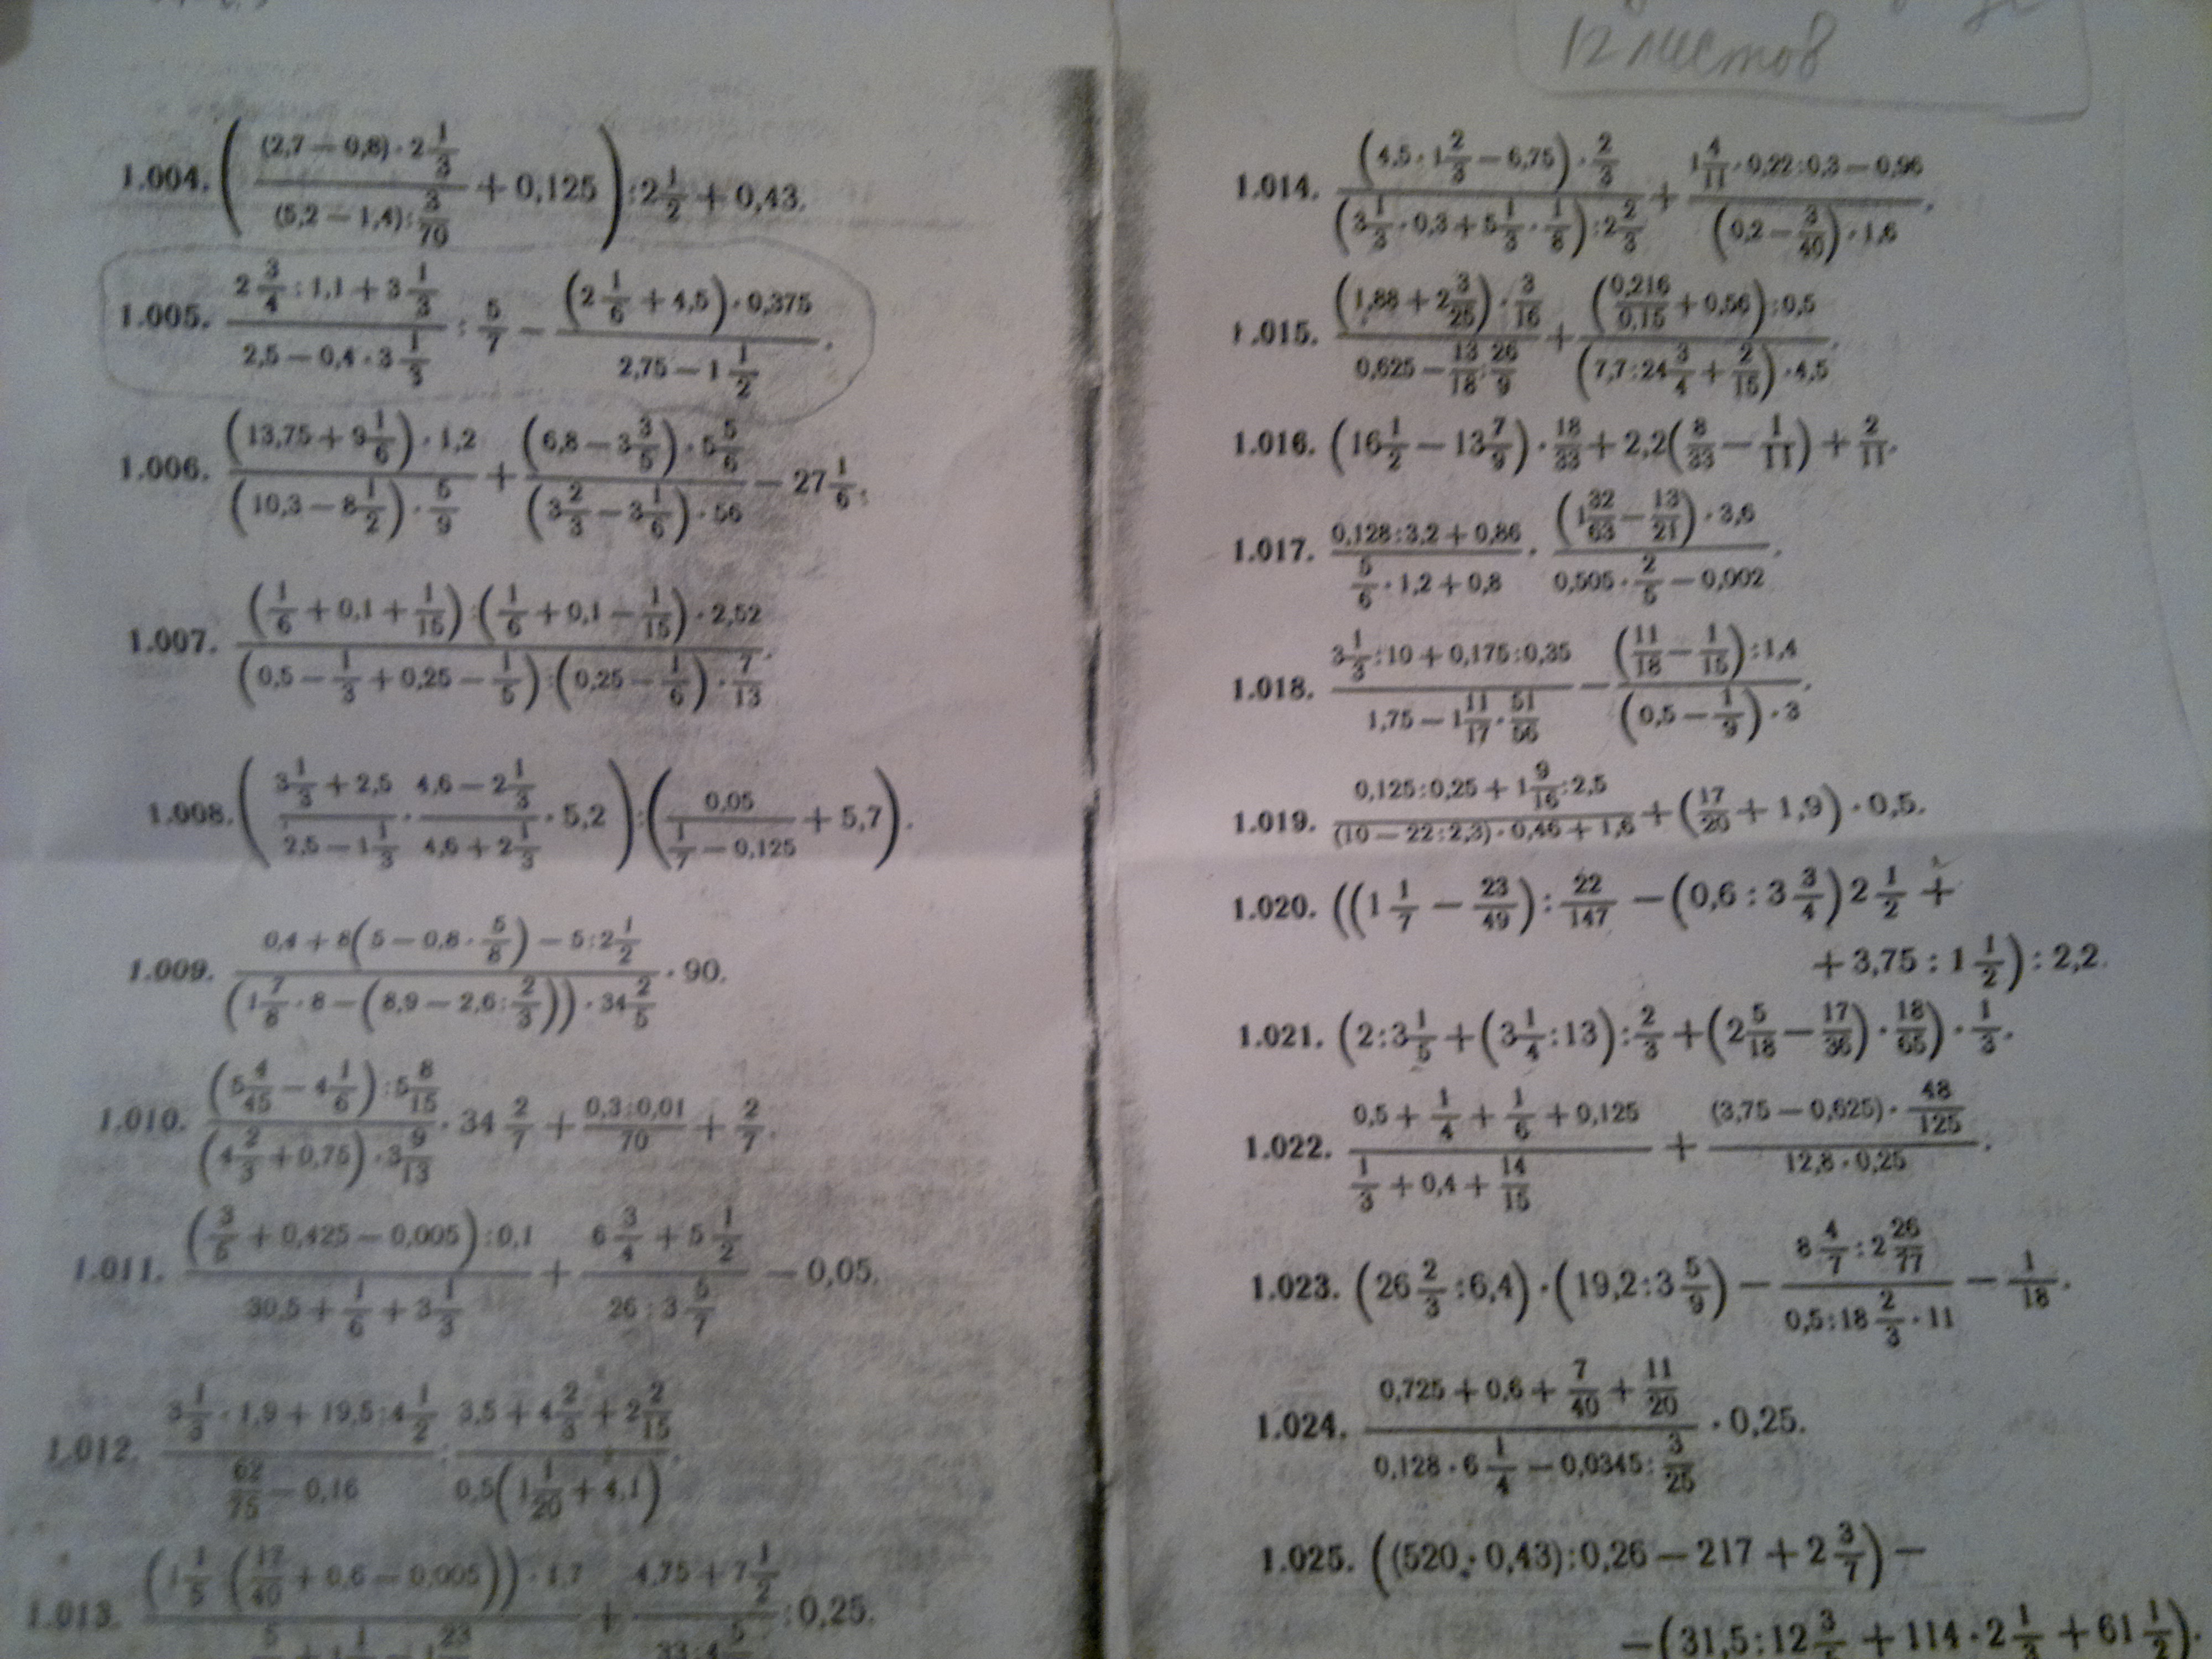 12 листов
1.004. ((2,7 − 0,8) · 2 1/3 / (5,2 − 1,4) : 3/70 + 0,125) : 2 1/2 + 0,43.
1.005. 2 3/4 : 1,1 + 3 1/3 / 2,5 − 0,4 · 3 1/3 : 5/7 − (2 1/6 + 4,5) · 0,375 / 2,75 − 1 1/2.
1.006. (13,75 + 9 1/6) · 1,2 / (10,3 − 8 1/2) · 5/9 + (6,8 − 3 3/5) · 5 5/6 / (3 2/3 − 3 1/6) · 56 − 27 1/6.
1.007. (1/6 + 0,1 + 1/15) : (1/6 + 0,1 − 1/15) · 2,52 / (0,5 − 1/3 + 0,25 − 1/5) : (0,25 − 1/6) · 7/13.
1.008. (3 1/3 + 2,5 / 2,5 − 1 1/3 · 4,6 − 2 1/3 / 4,6 + 2 1/3 · 5,2) : (0,05 / 1/7 − 0,125 + 5,7).
1.009. 0,4 + 8(5 − 0,8 · 5/8) − 5 : 2 1/2 / (1 7/8 · 8 − (8,9 − 2,6 : 2/3)) · 34 2/5 · 90.
1.010. (5 4/45 − 4 1/6) : 5 8/15 / (4 2/3 + 0,75) · 3 9/13 · 34 2/7 + 0,3 : 0,01 / 70 + 2/7.
1.011. (3/5 + 0,425 − 0,005) : 0,1 / 30,5 + 1/6 + 3 1/3 + 6 3/4 + 5 1/2 / 26 : 3 5/7 − 0,05.
1.012. 3 1/3 · 1,9 + 19,5 : 4 1/2 / 62/75 − 0,16 : 3,5 + 4 2/3 + 2 2/15 / 0,5(1 1/20 + 4,1).
1.013. (1 1/5 (17/40 + 0,6 − 0,005)) · 1,7 / 5 + 1 1 − 1 23 + 4,75 + 7 1/2 / 33 : 4 5 : 0,25.
1.014. (4,5 · 1 2/3 − 6,75) · 2/3 / (3 1/3 · 0,3 + 5 1/3 · 1/8) : 2 2/3 + 1 4/11 · 0,22 : 0,3 − 0,96 / (0,2 − 3/40) · 1,6.
1.015. (1,88 + 2 3/25) · 3/16 / 0,625 − 13/18 : 26/9 + (0,216/0,15 + 0,56) : 0,5 / (7,7 : 24 3/4 + 2/15) · 4,5.
1.016. (16 1/2 − 13 7/9) · 18/33 + 2,2(8/33 − 1/11) + 2/11.
1.017. 0,128 : 3,2 + 0,86 / 5/6 · 1,2 + 0,8 · (1 32/63 − 13/21) · 3,6 / 0,505 · 2/5 − 0,002.
1.018. 3 1/3 : 10 + 0,175 : 0,35 / 1,75 − 1 11/17 · 51/56 − (11/18 − 1/15) : 1,4 / (0,5 − 1/9) · 3.
1.019. 0,125 : 0,25 + 1 9/16 : 2,5 / (10 − 22 : 2,3) · 0,46 + 1,6 + (17/20 + 1,9) · 0,5.
1.020. ((1 1/7 − 23/49) : 22/147 − (0,6 : 3 3/4) 2 1/2 +
+ 3,75 : 1 1/2) : 2,2.
1.021. (2 : 3 1/5 + (3 1/4 : 13) : 2/3 + (2 5/18 − 17/36) · 18/65) · 1/3.
1.022. 0,5 + 1/4 + 1/6 + 0,125 / 1/3 + 0,4 + 14/15 + (3,75 − 0,625) · 48/125 / 12,8 · 0,25.
1.023. (26 2/3 : 6,4) · (19,2 : 3 5/9) − 8 4/7 : 2 26/77 / 0,5 : 18 2/3 · 11 − 1/18.
1.024. 0,725 + 0,6 + 7/40 + 11/20 / 0,128 · 6 1/4 − 0,0345 : 3/25 · 0,25.
1.025. ((520 · 0,43) : 0,26 − 217 + 2 3/7) −
− (31,5 : 12 3 + 114 · 2 1/3 + 61 1/2).